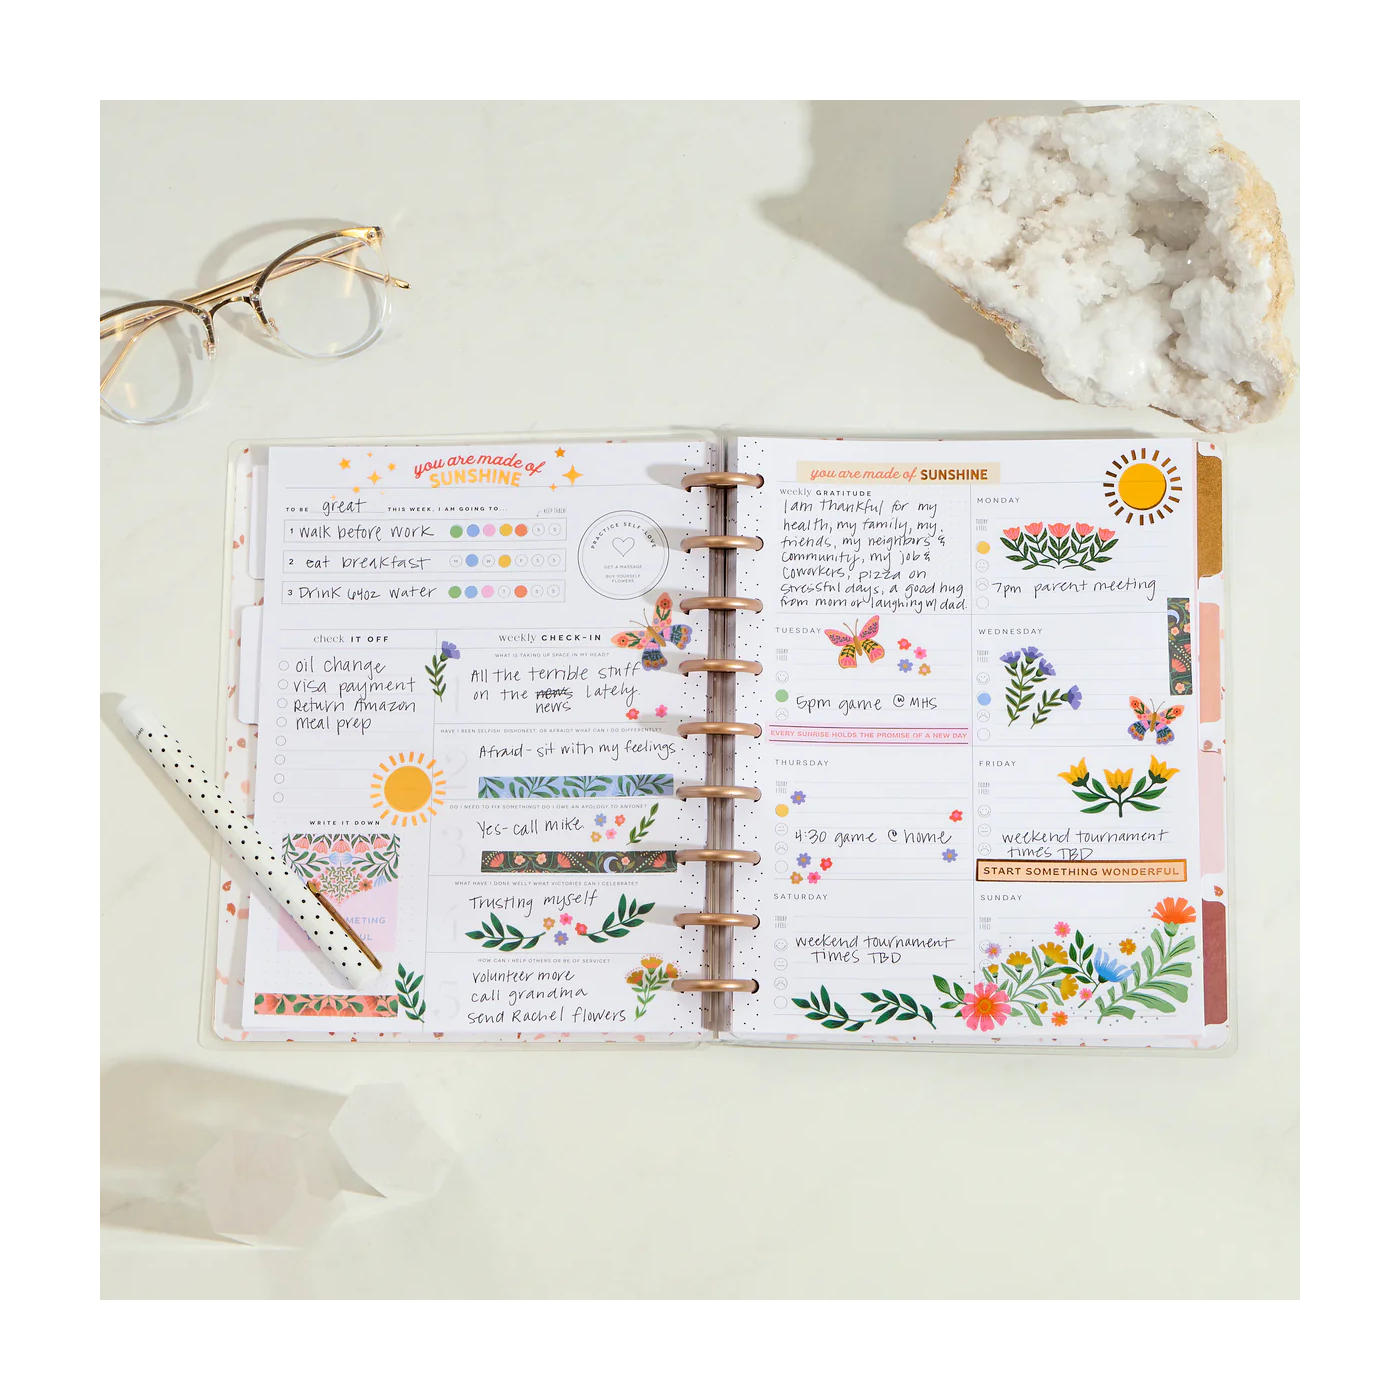 you are made of
SUNSHINE
TO BE great THIS WEEK, I AM GOING TO...
KEEP TRACK!
1 walk before work S S
2 eat breakfast M W F S S
3 Drink 64oz water T S S
PRACTICE SELF-LOVE
GET A MASSAGE
BUY YOURSELF
FLOWERS
check IT OFF
oil change
visa payment
Return Amazon
meal prep
WRITE IT DOWN
weekly CHECK-IN
WHAT IS TAKING UP SPACE IN MY HEAD?
All the terrible stuff
on the news lately.
news
HAVE I BEEN SELFISH, DISHONEST, OR AFRAID? WHAT CAN I DO DIFFERENTLY?
Afraid - sit with my feelings.
DO I NEED TO FIX SOMETHING? DO I OWE AN APOLOGY TO ANYONE?
Yes - call Mike
WHAT HAVE I DONE WELL? WHAT VICTORIES CAN I CELEBRATE?
Trusting myself
HOW CAN I HELP OTHERS OR BE OF SERVICE?
volunteer more
call grandma
send Rachel flowers
you are made of SUNSHINE
weekly GRATITUDE
I am thankful for my
health, my family, my
friends, my neighbors &
community, my job &
coworkers, pizza on
stressful days, a good hug
from mom or laughing w/ dad.
MONDAY
TODAY
I FEEL
7pm parent meeting
TUESDAY
TODAY
I FEEL
5pm game @ MHS
EVERY SUNRISE HOLDS THE PROMISE OF A NEW DAY
WEDNESDAY
TODAY
I FEEL
THURSDAY
TODAY
I FEEL
4:30 game @ home
FRIDAY
TODAY
I FEEL
weekend tournament
times TBD
START SOMETHING WONDERFUL
SATURDAY
TODAY
I FEEL
weekend tournament
times TBD
SUNDAY
TODAY
I FEEL